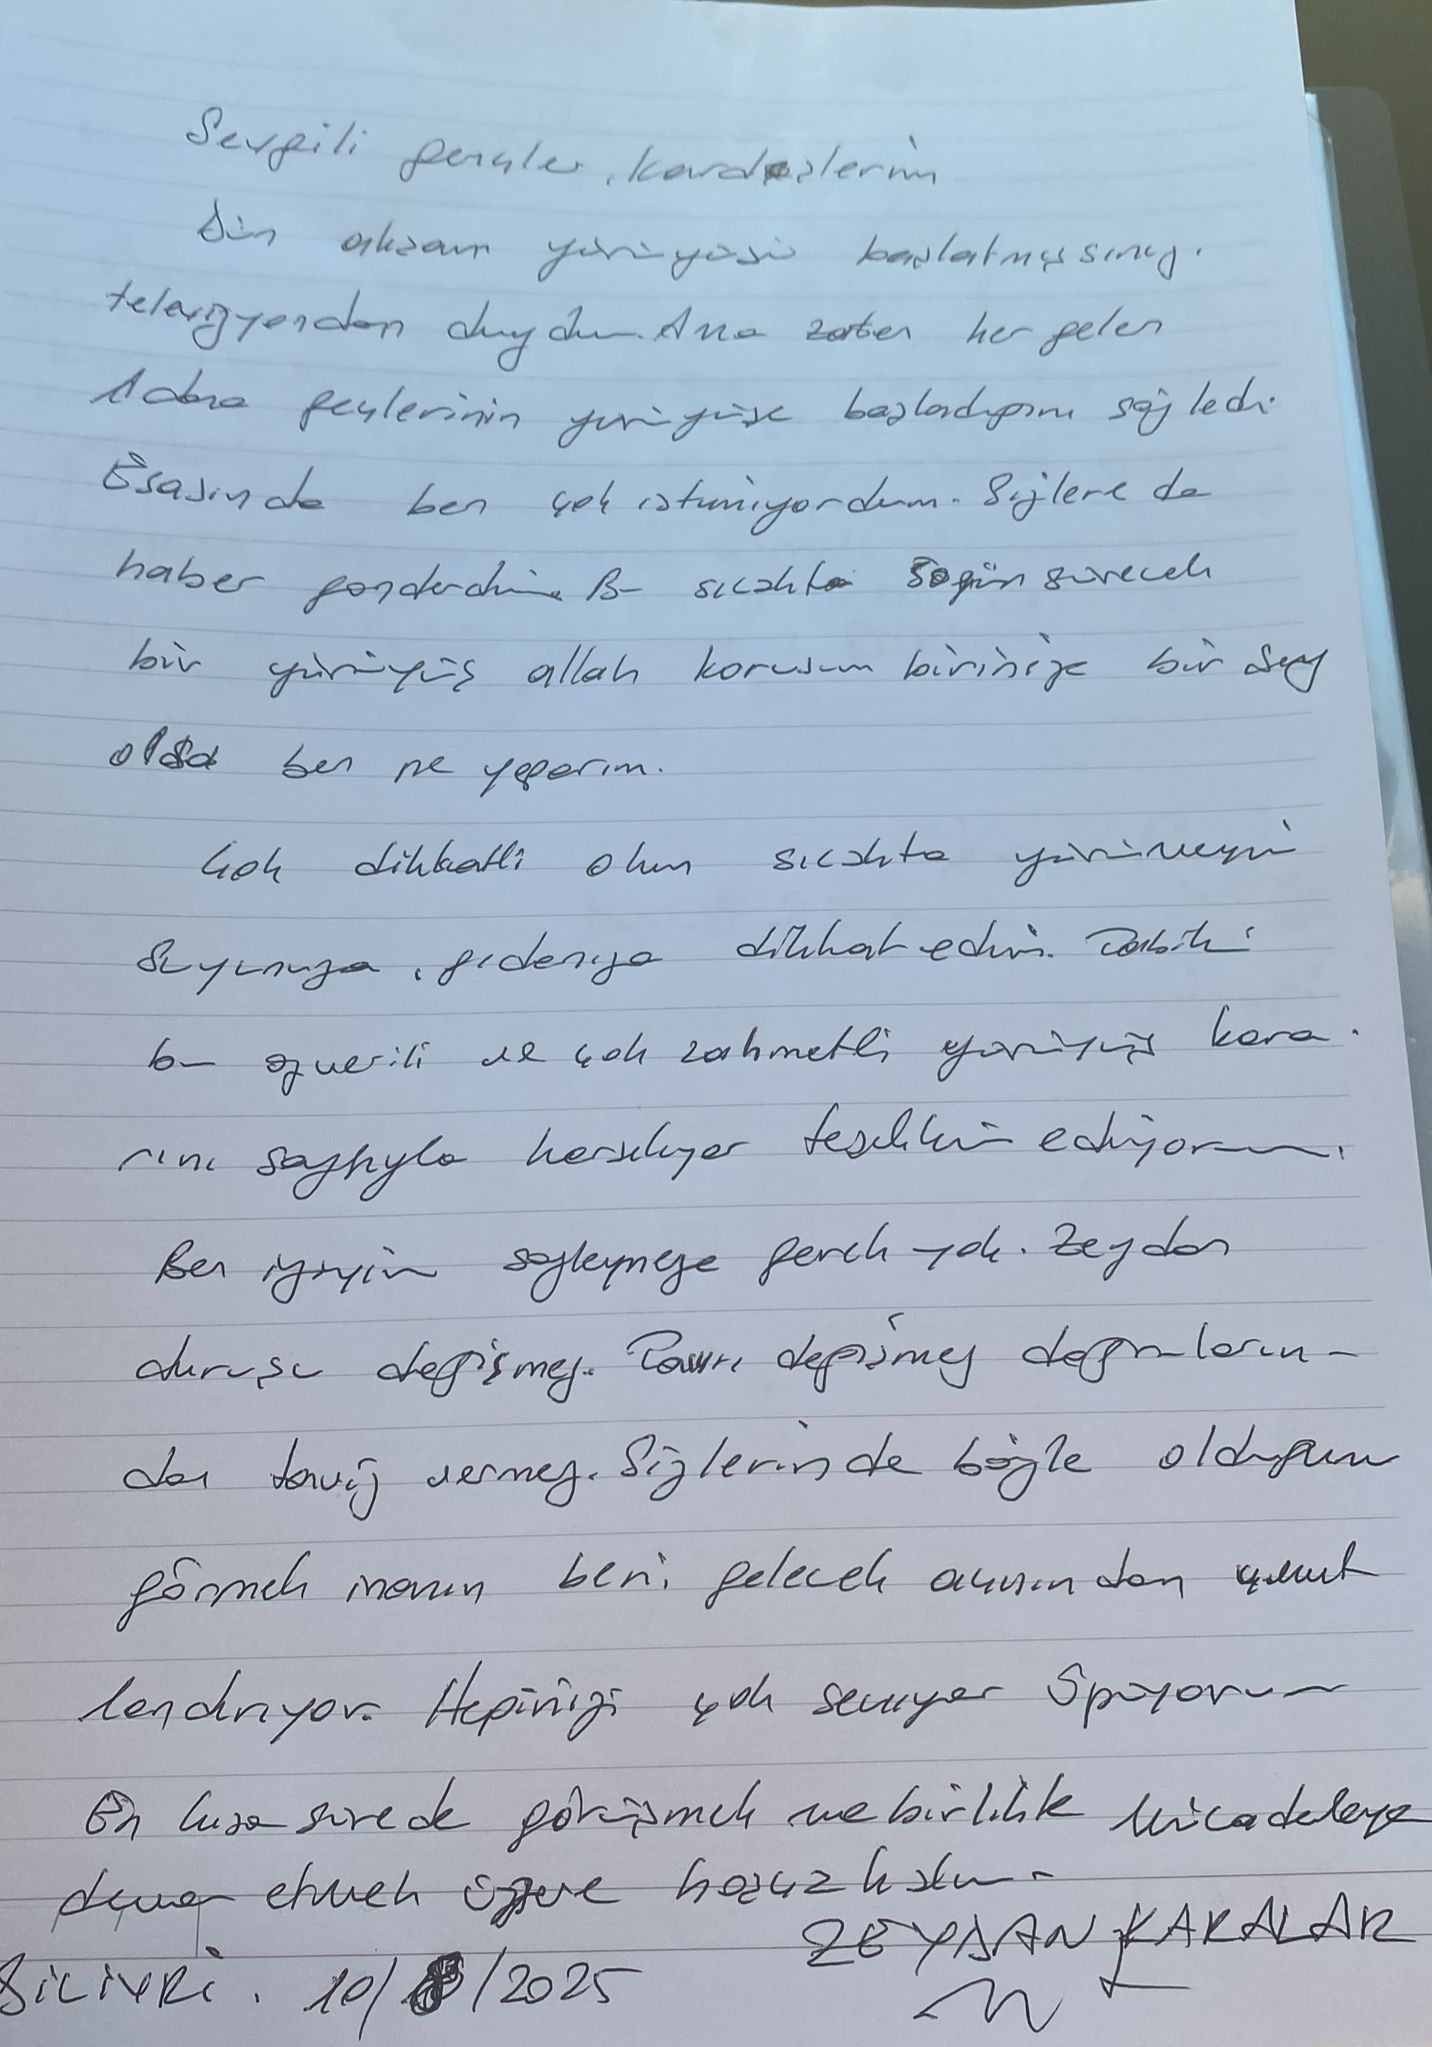 Sevgili gençler, kardeşlerim
Dün akşam yürüyüşü başlatmışsınız.
televizyondan duydum. Ama zaten her gelen
Adana gençlerinin yürüyüşe başladığını söyledi.
Esasında ben çok istemiyordum. Sizlere de
haber gönderdim. Bu sıcakta günlerce sürecek
bir yürüyüş allah korusun birinize bir şey
olsa ben ne yaparım.
Çok dikkatli olun sıcakta yürümeyin
Suyunuza, gıdanıza dikkat edin. Tabiki
bu özverili ve çok zahmetli yürüyüş kara-
rını saygıyla karşılıyor teşekkür ediyorum.
Ben iyiyim söylemeye gerek yok. Zeydan
duruşu değişmez. Tavrı değişmez doğruların-
dan taviz vermez. Sizlerinde böyle olduğunu
görmek inanın beni, gelecek açısından umut
lendiriyor. Hepinizi çok seviyor öpüyorum
En kısa sürede görüşmek ve birlikte mücadeleye
devam etmek üzere hoşça kalın.
ZEYDAN KARALAR
SİLİVRİ. 10/8/2025